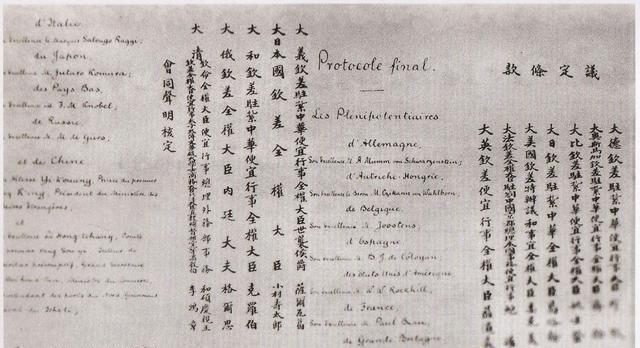 Protocole final.
Les Plénipotentiaires
d'Allemagne,
Son Excellence M. A. Mumm von Schwarzenstein;
d'Autriche-Hongrie,
Son Excellence le Baron M. Czikann von Wahlborn;
de Belgique,
Son Excellence M. Joostens;
d'Espagne,
Son Excellence M. B. J. de Cologan;
des Etats Unis d'Amérique
Son Excellence M. W. W. Rockhill;
de France,
Son Excellence M. Paul Beau;
de Grande Bretagne,
議定條款
大德欽差駐紮中華便宜行事
大奧斯馬加欽差駐紮中華便宜行事全權大臣
大比欽差駐紮中華便宜行事全權大臣
大日欽差駐紮中華全權大臣
大美國欽差特辦議和事宜全權大臣柔克義
大法欽差全權大臣駐劄中國京都總理本國事務便宜行事
大英欽差便宜行事全權大臣薩道義
d'Italie,
Excellence le Marquis Salvago Raggi;
du Japon,
Excellence M. Jutaro Komura;
des Pays Bas,
Excellence M. F. M. Knobel;
de Russie,
Excellence M. M. de Giers;
et de Chine
Altesse Yi K'ouang, Prince du premier
K'ing, Président du Ministère des
Affaires Etrangères,
et
Excellence Li Hong-tchang, Comte
大義欽差駐紮中華便宜行事全權大臣世襲侯爵薩爾瓦葛
大日本國欽差全權大臣小村壽太郎
大和欽差駐紮中華便宜行事全權大臣克羅伯
大俄欽差全權大臣內廷大夫格爾思
大清欽命全權大臣便宜行事總理外務部事務和碩慶親王
李鴻章
會同聲明核定